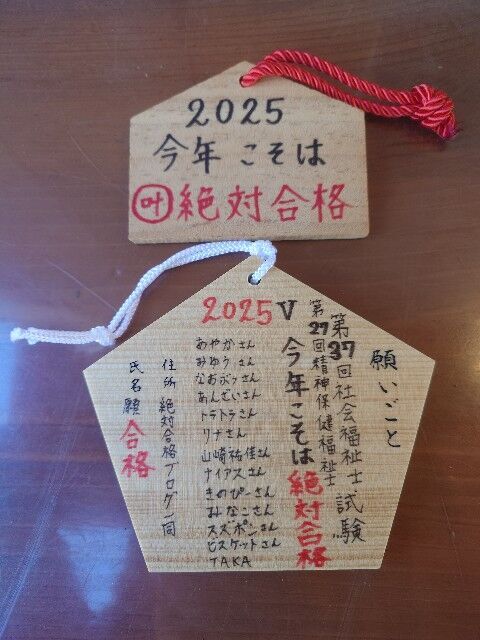 2025
今年こそは
叶絶対合格
願いごと
第37回社会福祉士試験
第27回精神保健福祉士
2025V
今年こそは絶対合格
あやかさん
みゆうさん
なおぶぅさん
あんていさん
トラトラさん
リナさん
山崎祐佳さん
ナイアスさん
きのぴーさん
みなこさん
スズポンさん
ビスケットさん
TAKA
住所 絶対合格ブログ一同
氏名 願合格